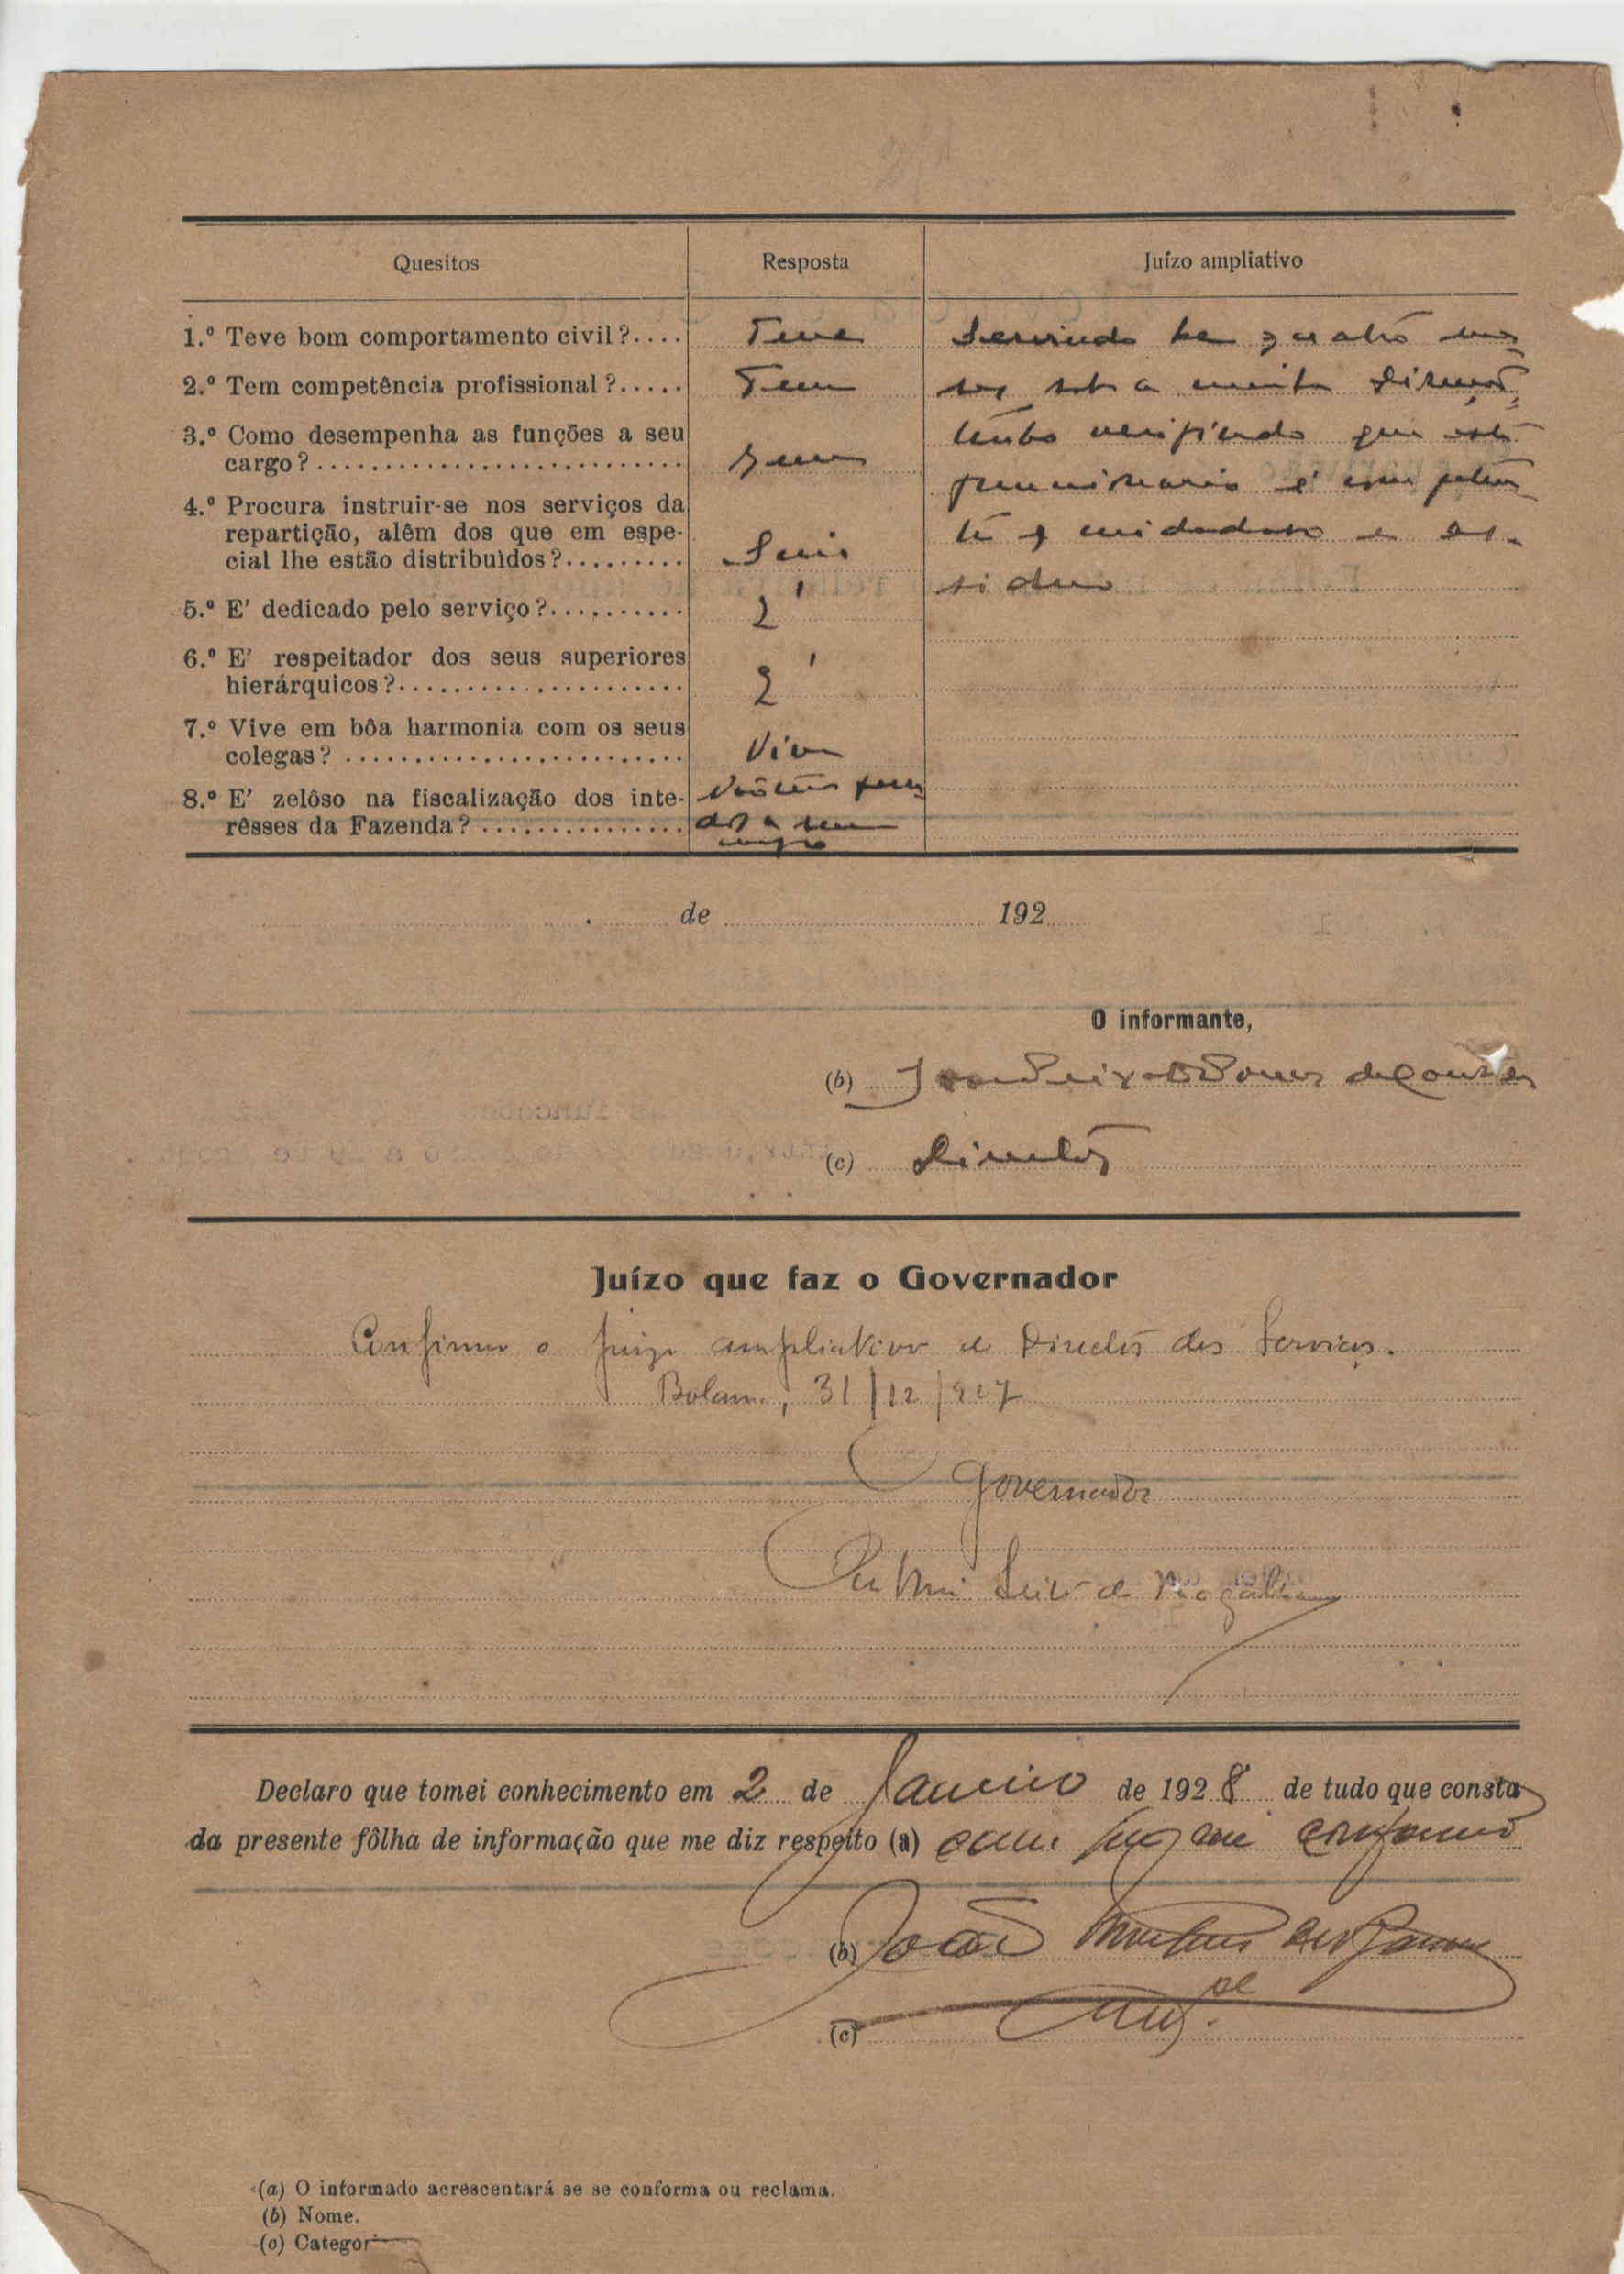 Quesitos
Resposta
Juízo ampliativo
1.º Teve bom comportamento civil?....
Teve
2.º Tem competência profissional?.....
Tem
3.º Como desempenha as funções a seu
cargo?...........................
Bem
4.º Procura instruir-se nos serviços da
repartição, alêm dos que em espe-
cial lhe estão distribuìdos?.........
Sim
5.º E' dedicado pelo serviço?..........
É
6.º E' respeitador dos seus superiores
hierárquicos?.....................
É
7.º Vive em bôa harmonia com os seus
colegas?.........................
Vive
8.º E' zelôso na fiscalização dos inte-
rêsses da Fazenda?...............
a seu
cargo
Servindo ha quatro me
ses sob a minha Direcção,
tenho verificado que este
funcionario é competen
te, cuidadoso e as-
siduo
de 192
O informante,
(b) de Sousa
(c) Director
Juízo que faz o Governador
Confirmo o juizo ampliativo do Director dos Serviços.
Bolama, 31/12/927
O Governador
Antonio Leite de Magalhães
Declaro que tomei conhecimento em 2 de Janeiro de 1928 de tudo que consta
da presente fôlha de informação que me diz respeito (a) com que me conformo
(b) João Martins
(c)
(a) O informado acrescentará se se conforma ou reclama.
(b) Nome.
(c) Categori